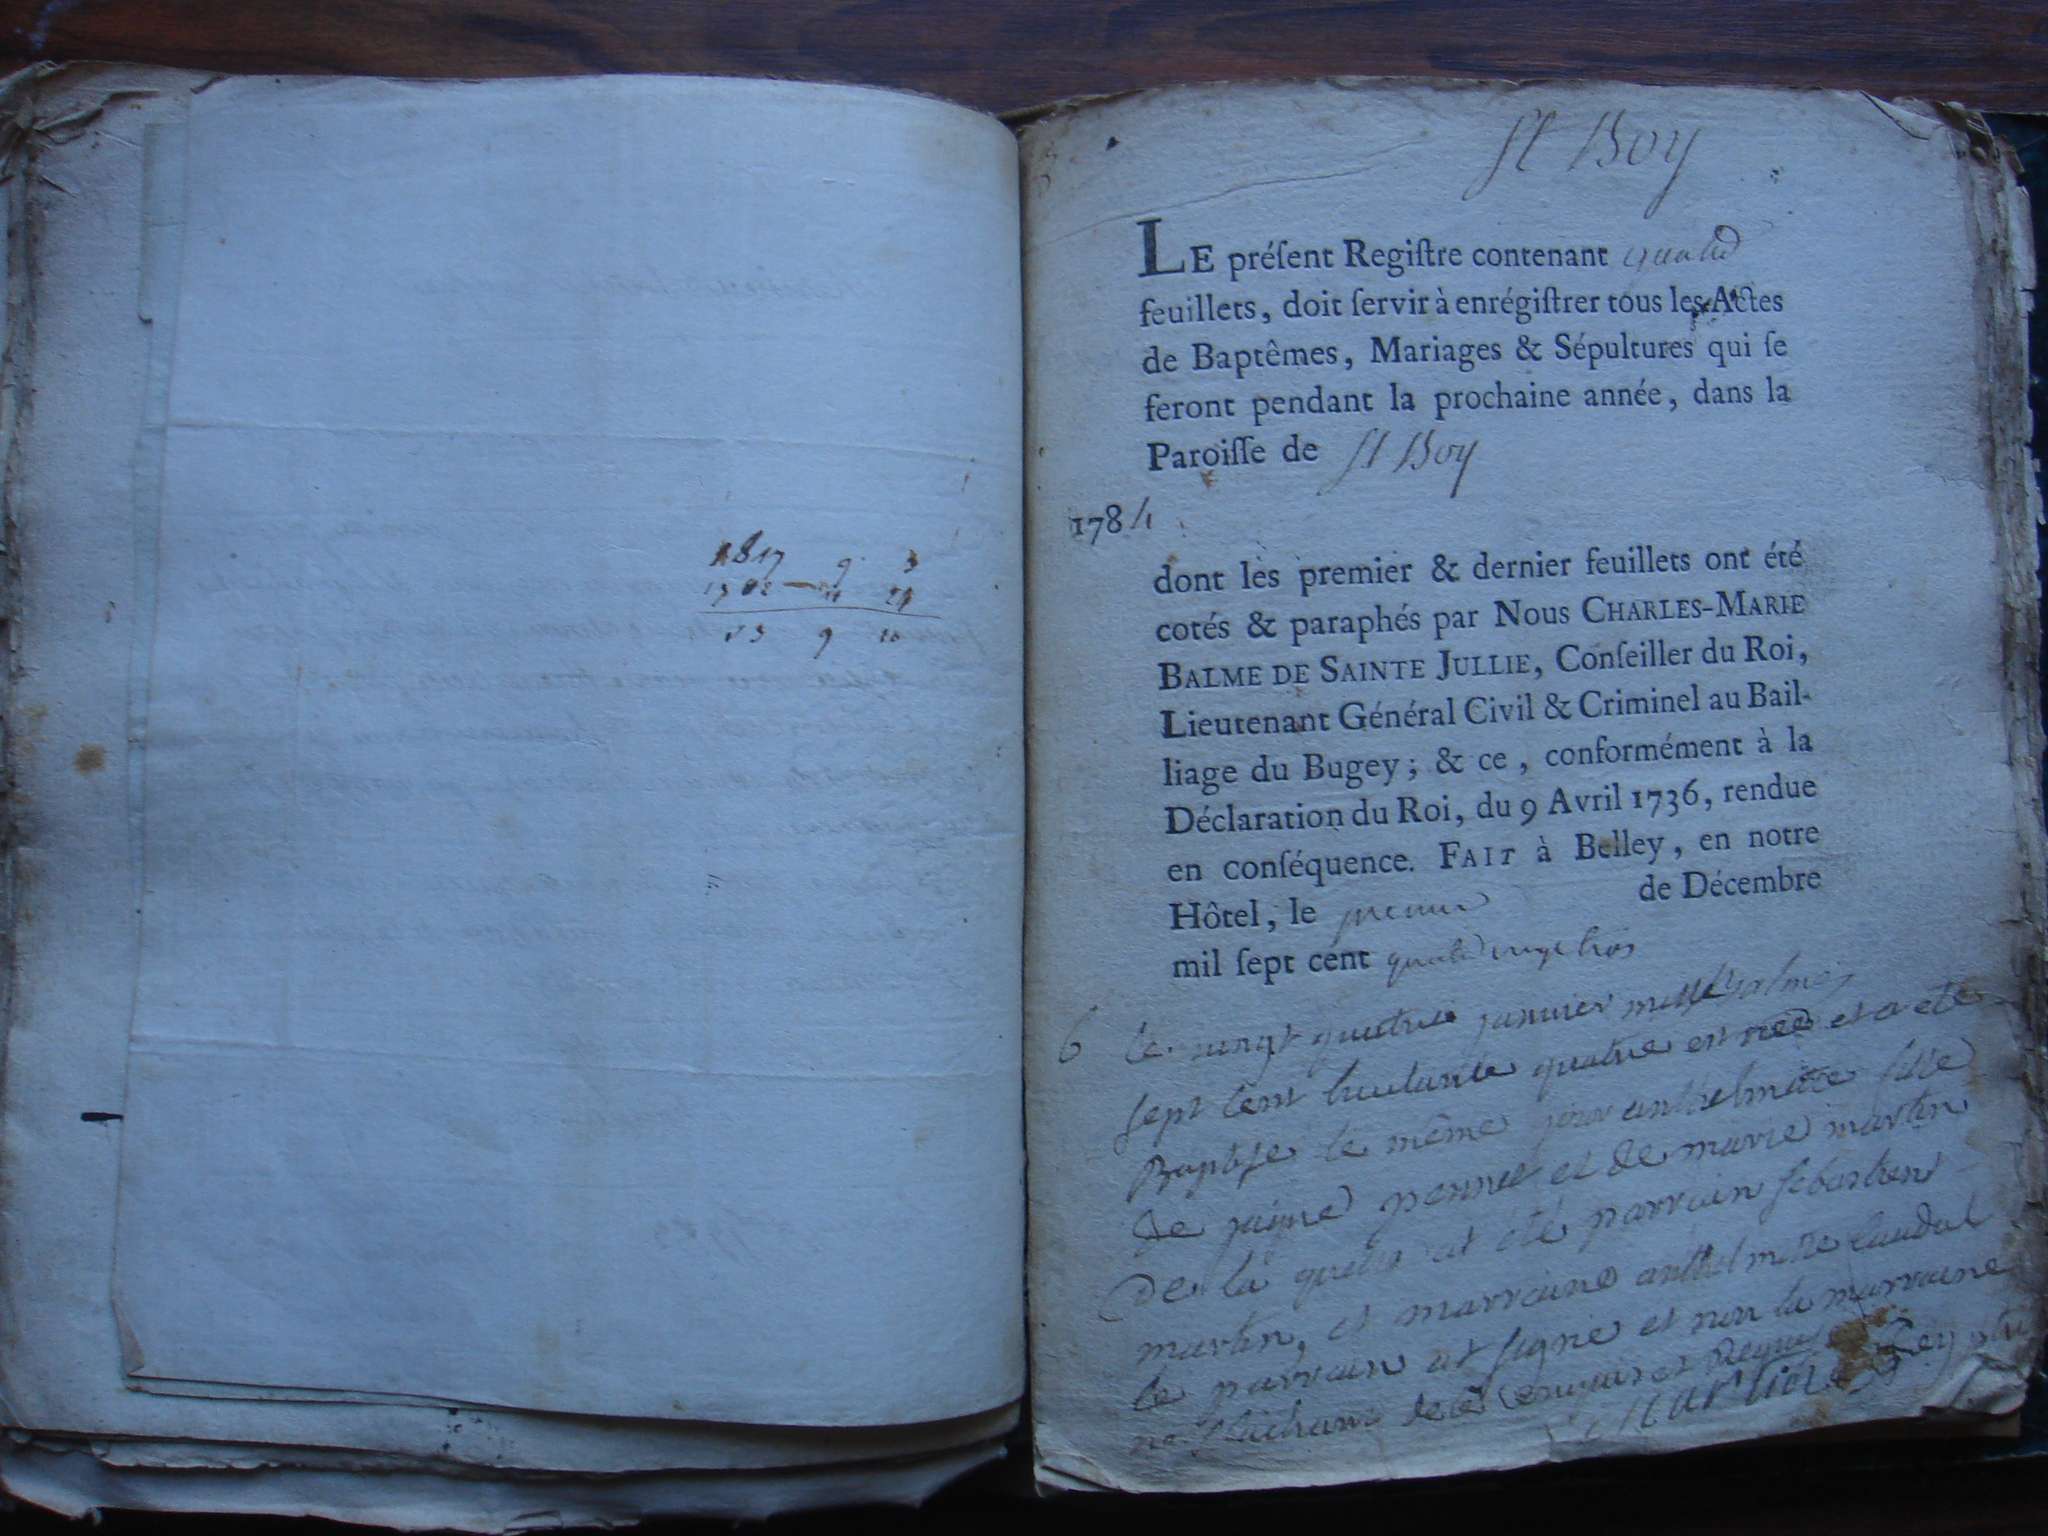 1817 9 3
St Boy
LE préſent Regiſtre contenant quatre
feuillets, doit ſervir à enrégiſtrer tous les Actes
de Baptêmes, Mariages & Sépultures qui ſe
feront pendant la prochaine année, dans la
Paroiſſe de St Boy
1784
dont les premier & dernier feuillets ont été
cotés & paraphés par Nous CHARLES-MARIE
BALME DE SAINTE JULLIE, Conſeiller du Roi,
Lieutenant Général Civil & Criminel au Bail-
liage du Bugey ; & ce , conformément à la
Déclaration du Roi, du 9 Avril 1736, rendue
en conſéquence. FAIT à Belley, en notre
Hôtel, le premier de Décembre
mil ſept cent quatre vingt trois
6 le vingt quatrie janvier mille
sept cent huitante quatre est née et a été
Baptise le même jour anthelmette fille
de jaique pennet et de marie martin
De la quelle at été parrain sebastien
martin, et marraine anthelmette caudal
le parrain at signe et non la marraine
ne sachant de ce enquis et Requis
martin